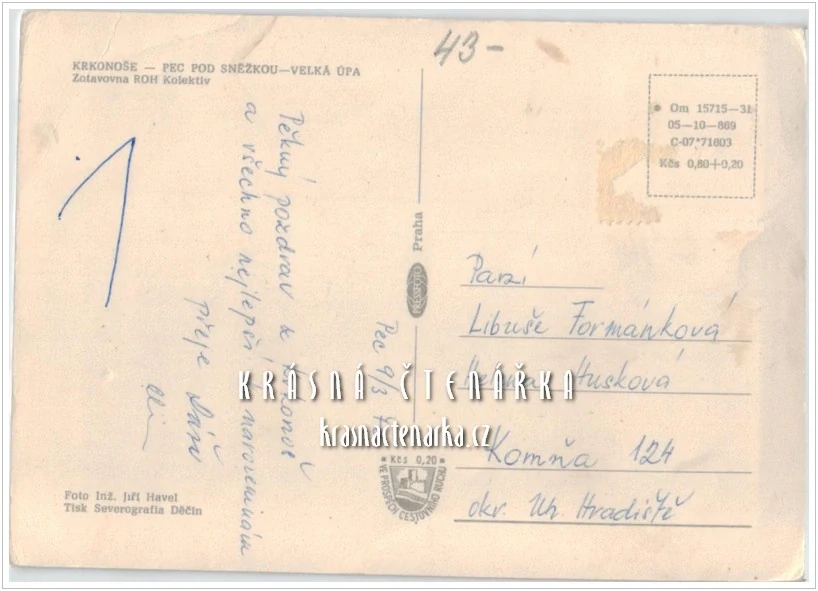 43-
KRKONOŠE — PEC POD SNĚŽKOU—VELKÁ ÚPA
Zotavovna ROH Kolektiv
Om 15715—31
05—10—869
C-07*71803
Kčs 0,80+0,20
Pec 9/3
Pěkný pozdrav z Krkonoš
a všechno nejlepší k narozeninám
přeje
PRESSFOTO Praha
Paní
Libuše Formánková
Husková
Komňa 124
okr. Uh. Hradiště
KRÁSNÁ ČTENÁŘKA
krasnactenarka.cz
Kčs 0,20
VE PROSPĚCH CESTOVNÍHO RUCHU
Foto Inž. Jiří Havel
Tisk Severografia Děčín